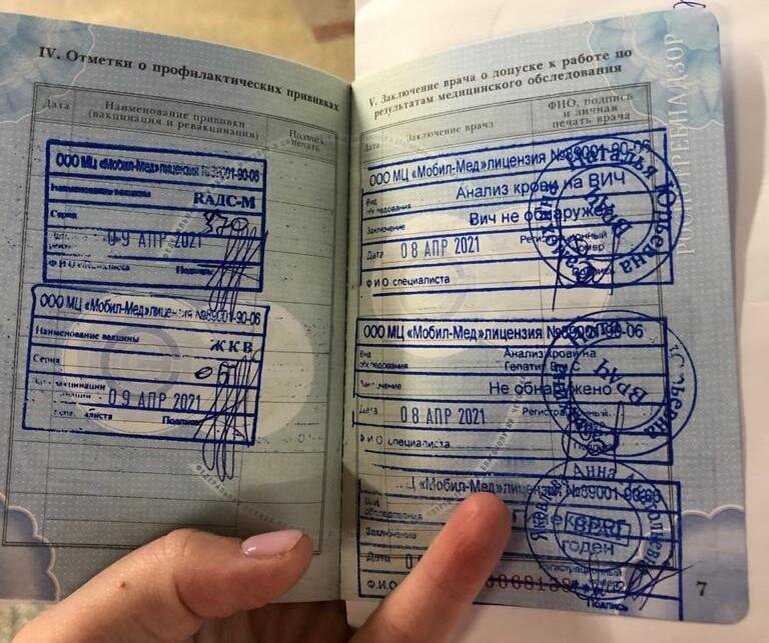 IV. Отметки о профилактических прививках
Дата
Наименование прививки
(вакцинация и ревакцинация)
Подпись
печать
ООО МЦ «Мобил-Мед» лицензия №89001-90-06
Наименование вакцины
RАДС-М
Серия
370
09 АПР 2021
Ф И О специалиста
Подпись
ООО МЦ «Мобил-Мед» лицензия №89001-90-06
Наименование вакцины
ЖКВ
Серия
вакцинации
09 АПР 2021
Подпись
V. Заключение врача о допуске к работе по
результатам медицинского обследования
Дата
Заключение врача
ФИО, подпись
и личная
печать врача
ООО МЦ «Мобил-Мед» лицензия №89001-90-06
Вид
обследования
Анализ крови на ВИЧ
Заключение
Вич не обнаружен
Дата
08 АПР 2021
Регистрационный
номер
Ф И О специалиста
Подпись
Наталья Юрьевна
Врач
ООО МЦ «Мобил-Мед» лицензия №89001-90-06
Вид
обследования
Анализ крови на
Гепатит В, С
Заключение
Не обнаружено
Дата
08 АПР 2021
Ф И О специалиста
Врач
«Мобил-Мед» лицензия №89001-90-06
Вид
обследования
Заключение
годен
Дата
Ф.И.О
Подпись
Анна
РОСПОТРЕБНАДЗОР
7